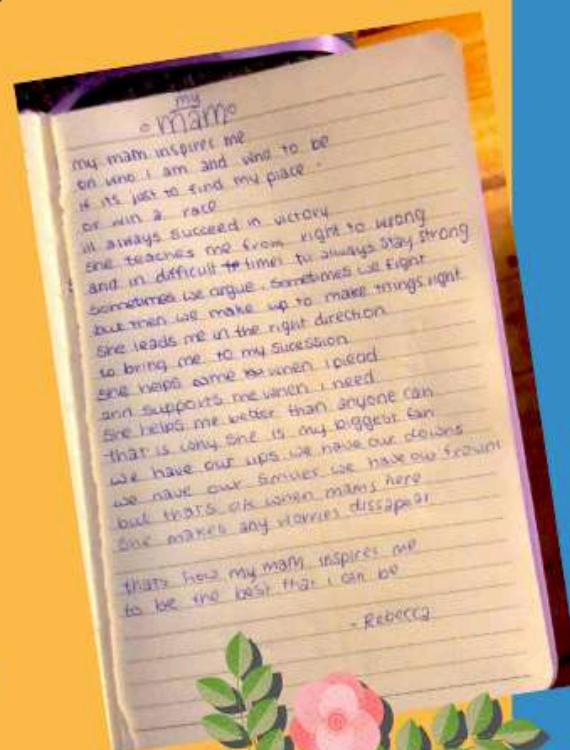 my
mam
my mam inspires me
on who I am and who to be
if its just to find my place.
or win a race
ill always succeed in victory
she teaches me from right to wrong
and in difficult times to always stay strong
sometimes we argue, sometimes we fight
but then we make up to make things right
she leads me in the right direction
to bring me to my sucession
she helps when I plead
and supports me when I need
she helps me better than anyone can
that is why she is my biggest fan
we have our ups we have our downs
we have our smiles we have our frowns
but thats ok when mams here
she makes any worries dissapear
thats how my mam inspires me
to be the best that I can be
- Rebecca